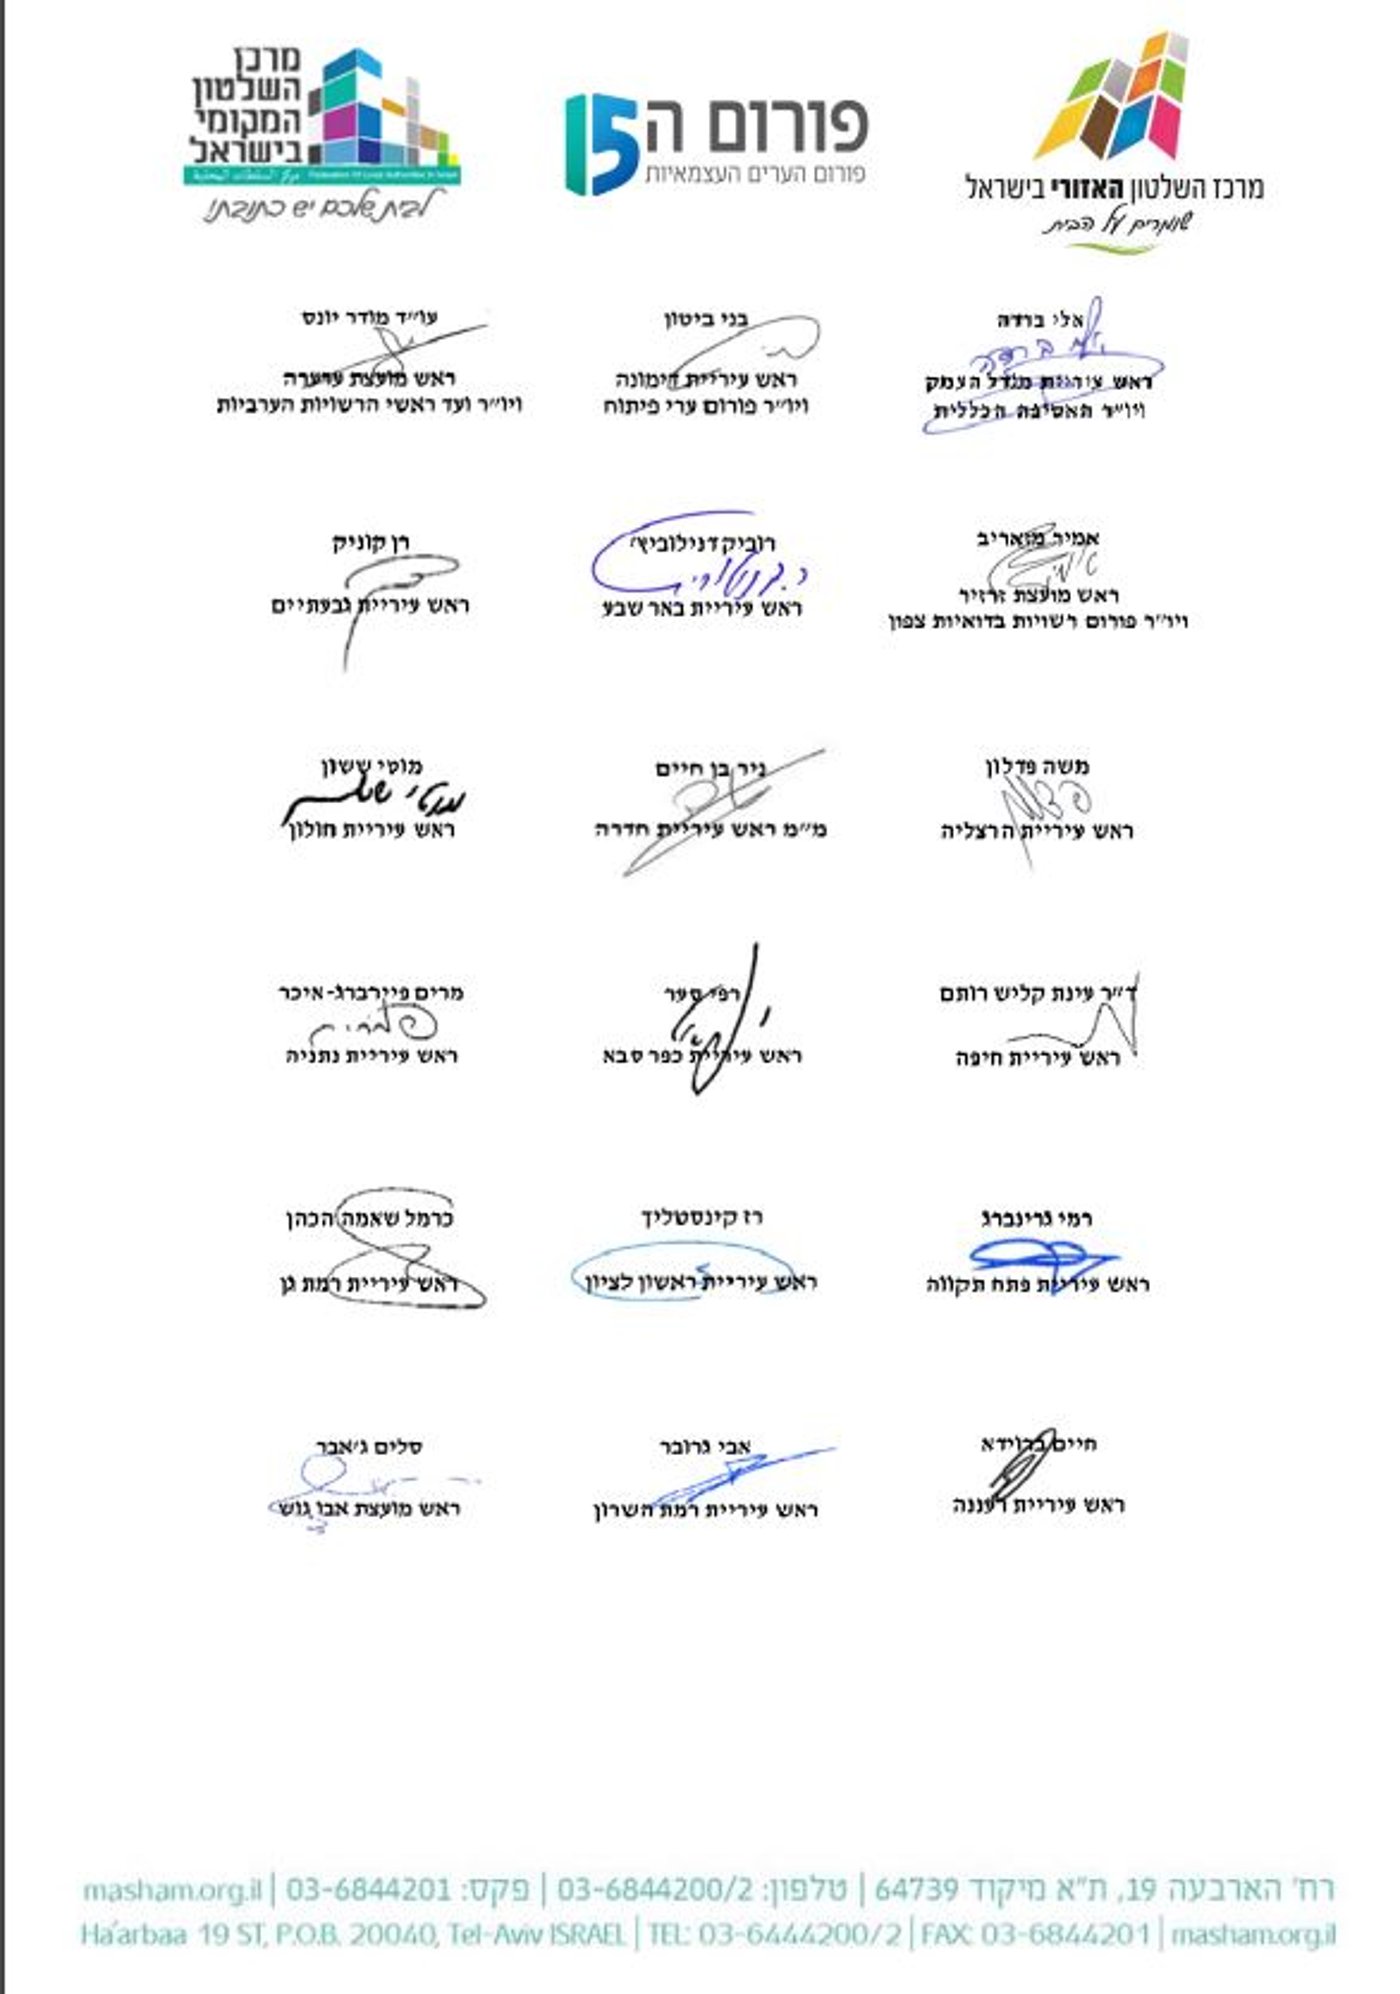 מרכז השלטון האזורי בישראל
שומרים על הבית
פורום ה15
פורום הערים העצמאיות
מרכז
השלטון
המקומי
בישראל
Federation Of Local Authorities In Israel
לבית שלכם יש כתובת
אלי ברדה
ראש עיריית מגדל העמק
ויו״ר האסיפה הכללית
בני ביטון
ראש עיריית דימונה
ויו״ר פורום ערי פיתוח
עו״ד מודר יונס
ראש מועצת ערערה
ויו״ר ועד ראשי הרשויות הערביות
אמיר מזאריב
ראש מועצת זרזיר
ויו״ר פורום רשויות בדואיות צפון
רוביק דנילוביץ'
ראש עיריית באר שבע
רן קוניק
ראש עיריית גבעתיים
משה פדלון
ראש עיריית הרצליה
ניר בן חיים
מ״מ ראש עיריית חדרה
מוטי ששון
ראש עיריית חולון
ד״ר עינת קליש רותם
ראש עיריית חיפה
רפי סער
ראש עיריית כפר סבא
מרים פיירברג-איכר
ראש עיריית נתניה
רמי גרינברג
ראש עיריית פתח תקווה
רז קינסטליך
ראש עיריית ראשון לציון
כרמל שאמה הכהן
ראש עיריית רמת גן
חיים ברוידא
ראש עיריית רעננה
אבי גרובר
ראש עיריית רמת השרון
סלים ג'אבר
ראש מועצת אבו גוש
רח' הארבעה 19, ת"א מיקוד 64739 | טלפון: 03-6844200/2 | פקס: 03-6844201 | masham.org.il
Ha'arbaa 19 ST, P.O.B. 20040, Tel-Aviv ISRAEL | TEL: 03-6444200/2 | FAX: 03-6844201 | masham.org.il